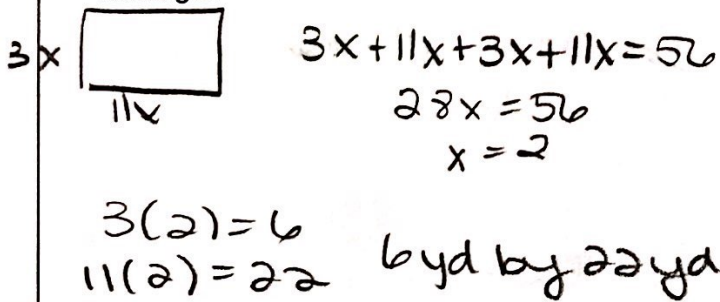 3x
11x
3x+11x+3x+11x=56
28x=56
x=2
3(2)=6
11(2)=22
6yd by 22yd